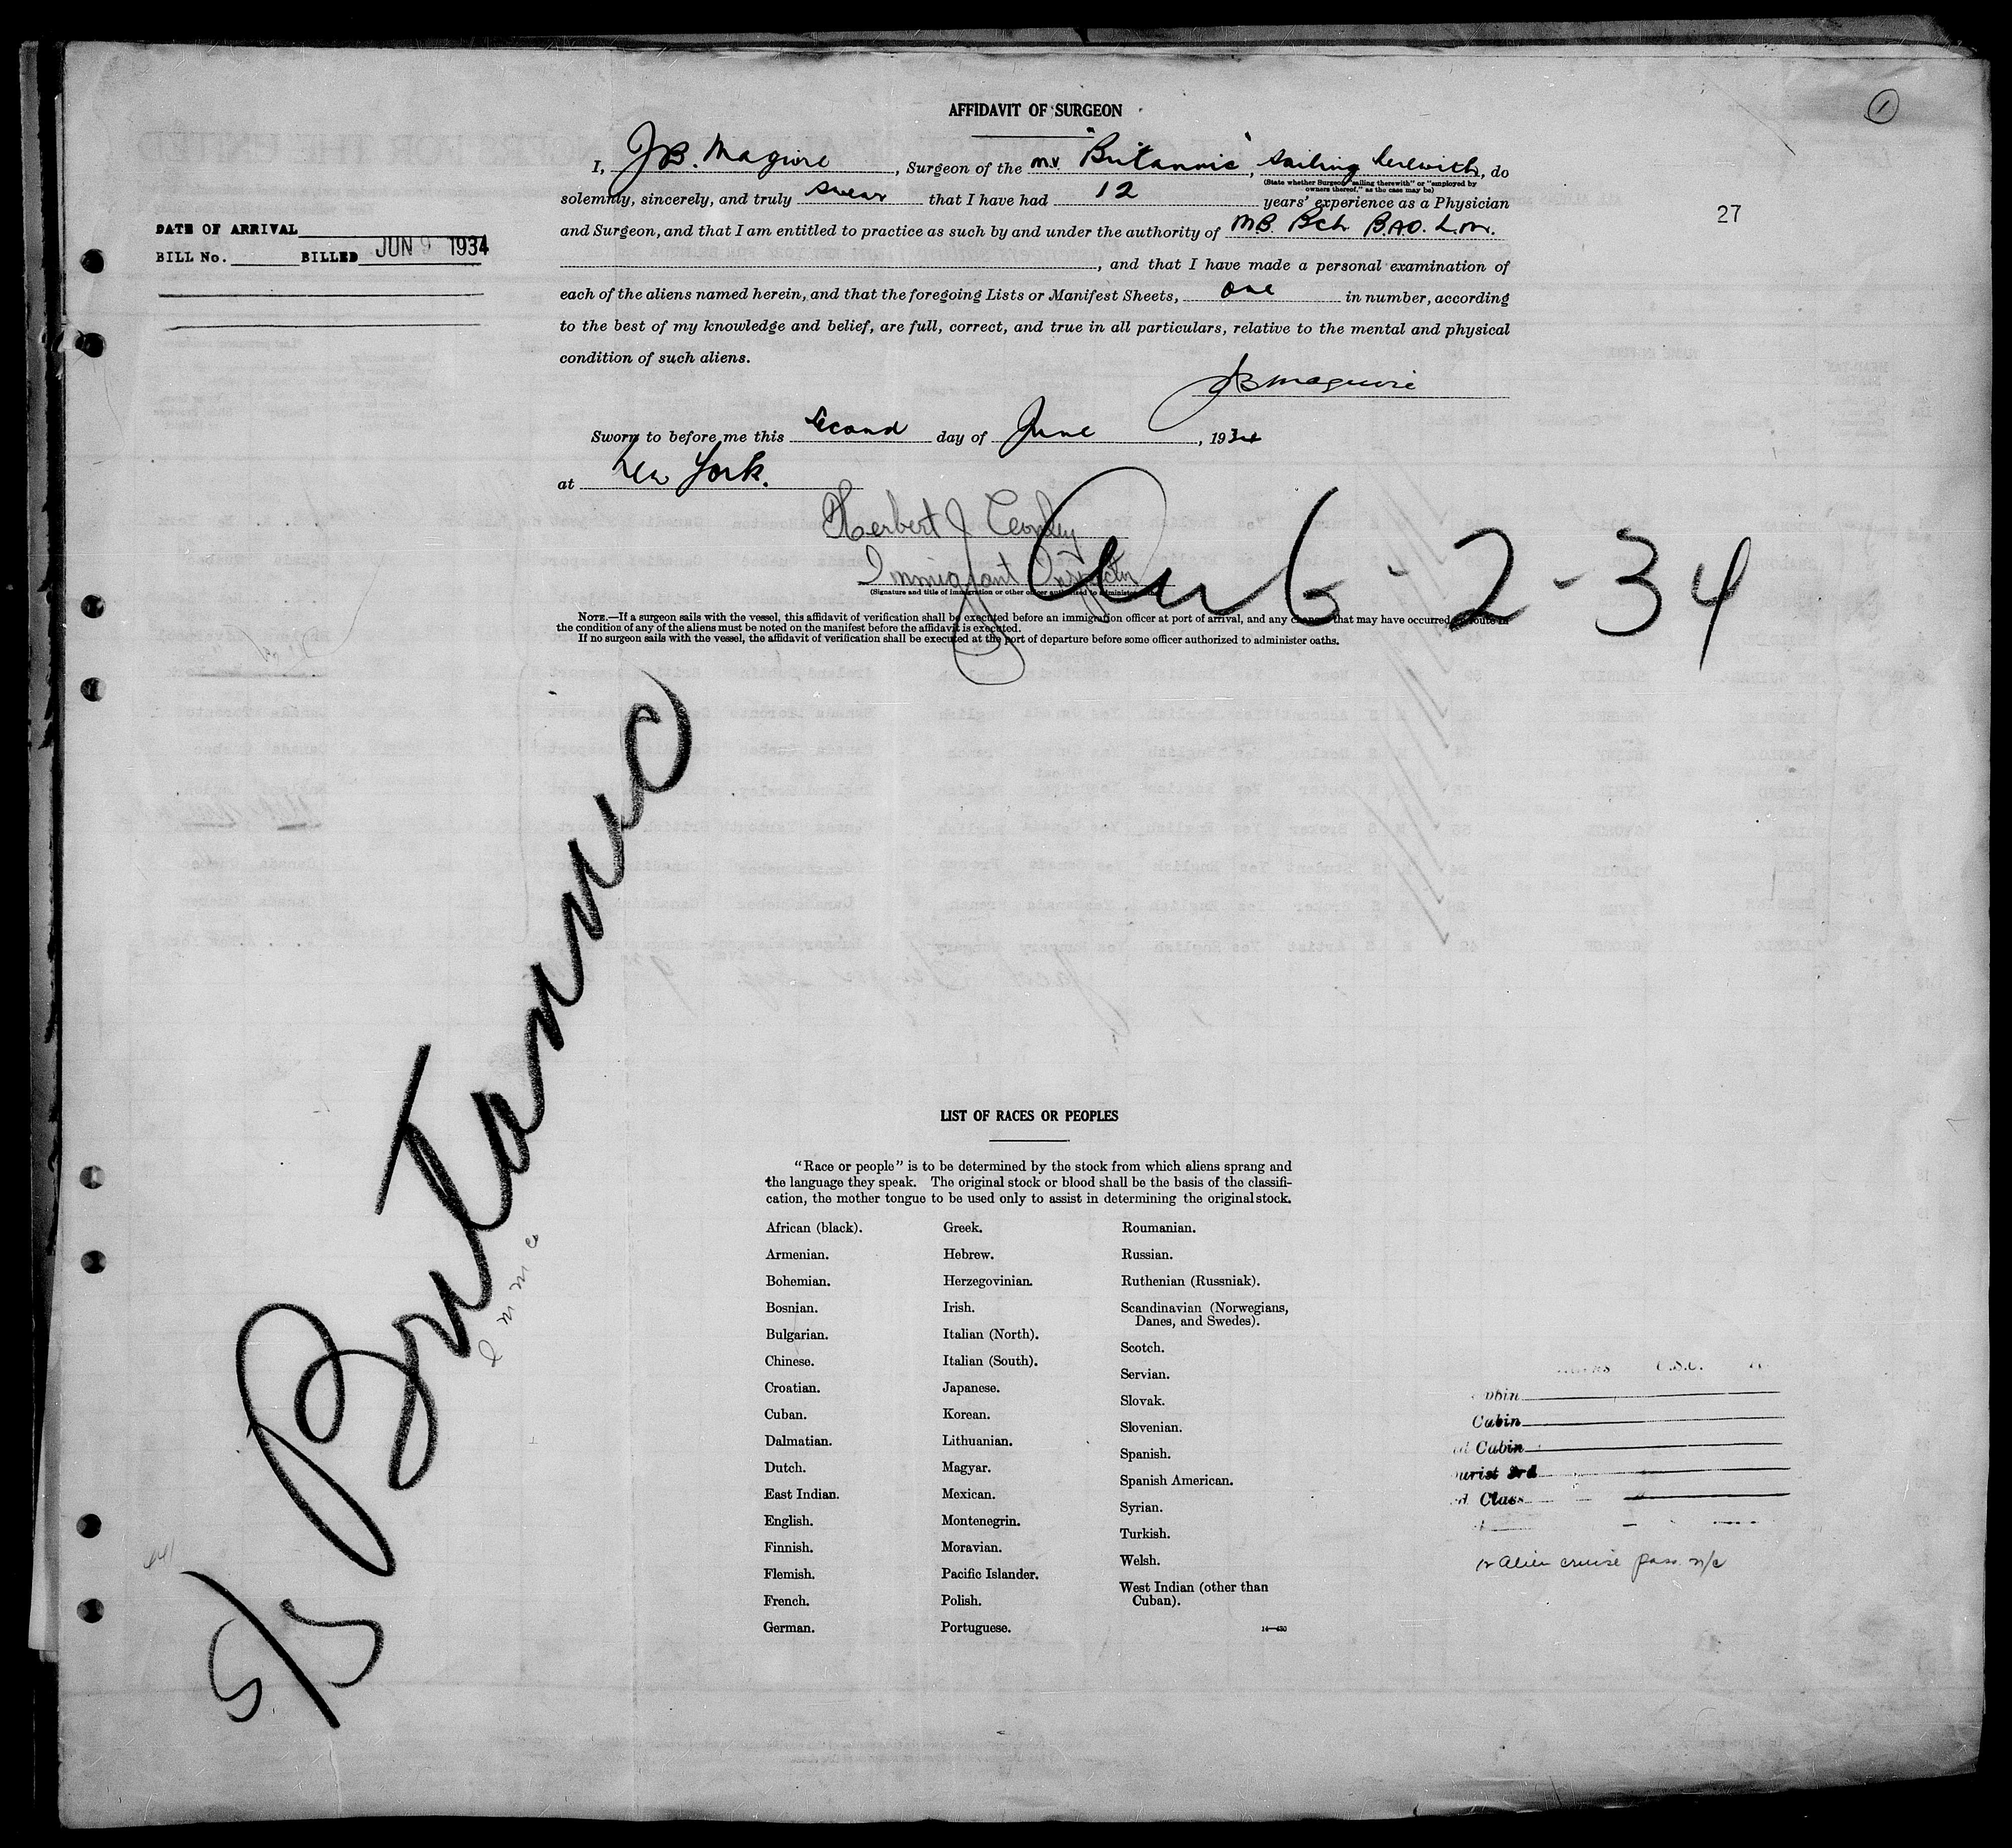 AFFIDAVIT OF SURGEON
1
I, JB. Maguire, Surgeon of the m.v. "Britannic", sailing herewith, do
(State whether Surgeon "sailing therewith" or "employed by
owners thereof," as the case may be)
solemnly, sincerely, and truly swear that I have had 12 years' experience as a Physician
and Surgeon, and that I am entitled to practice as such by and under the authority of M.B. BCh B.A.O. L.M.
, and that I have made a personal examination of
each of the aliens named herein, and that the foregoing Lists or Manifest Sheets, one in number, according
to the best of my knowledge and belief, are full, correct, and true in all particulars, relative to the mental and physical
condition of such aliens.
27
DATE OF ARRIVAL
BILL No. BILLED JUN 9 1934
JB Maguire
Sworn to before me this second day of June, 1934
at New York.
Herbert J
Immigrant Inspector
(Signature and title of immigration or other officer authorized to administer
Arr 6-2-34
NOTE.—If a surgeon sails with the vessel, this affidavit of verification shall be executed before an immigration officer at port of arrival, and any changes that may have occurred en route in
the condition of any of the aliens must be noted on the manifest before the affidavit is executed.
If no surgeon sails with the vessel, the affidavit of verification shall be executed at the port of departure before some officer authorized to administer oaths.
S/S Britannic
LIST OF RACES OR PEOPLES
"Race or people" is to be determined by the stock from which aliens sprang and
the language they speak. The original stock or blood shall be the basis of the classifi-
cation, the mother tongue to be used only to assist in determining the original stock.
African (black).
Armenian.
Bohemian.
Bosnian.
Bulgarian.
Chinese.
Croatian.
Cuban.
Dalmatian.
Dutch.
East Indian.
English.
Finnish.
Flemish.
French.
German.
Greek.
Hebrew.
Herzegovinian.
Irish.
Italian (North).
Italian (South).
Japanese.
Korean.
Lithuanian.
Magyar.
Mexican.
Montenegrin.
Moravian.
Pacific Islander.
Polish.
Portuguese.
Roumanian.
Russian.
Ruthenian (Russniak).
Scandinavian (Norwegians,
Danes, and Swedes).
Scotch.
Servian.
Slovak.
Slovenian.
Spanish.
Spanish American.
Syrian.
Turkish.
Welsh.
West Indian (other than
Cuban).
14—430
U.S.C.
Cabin
Cabin
3rd
Class
12 alien cruise pass n/c